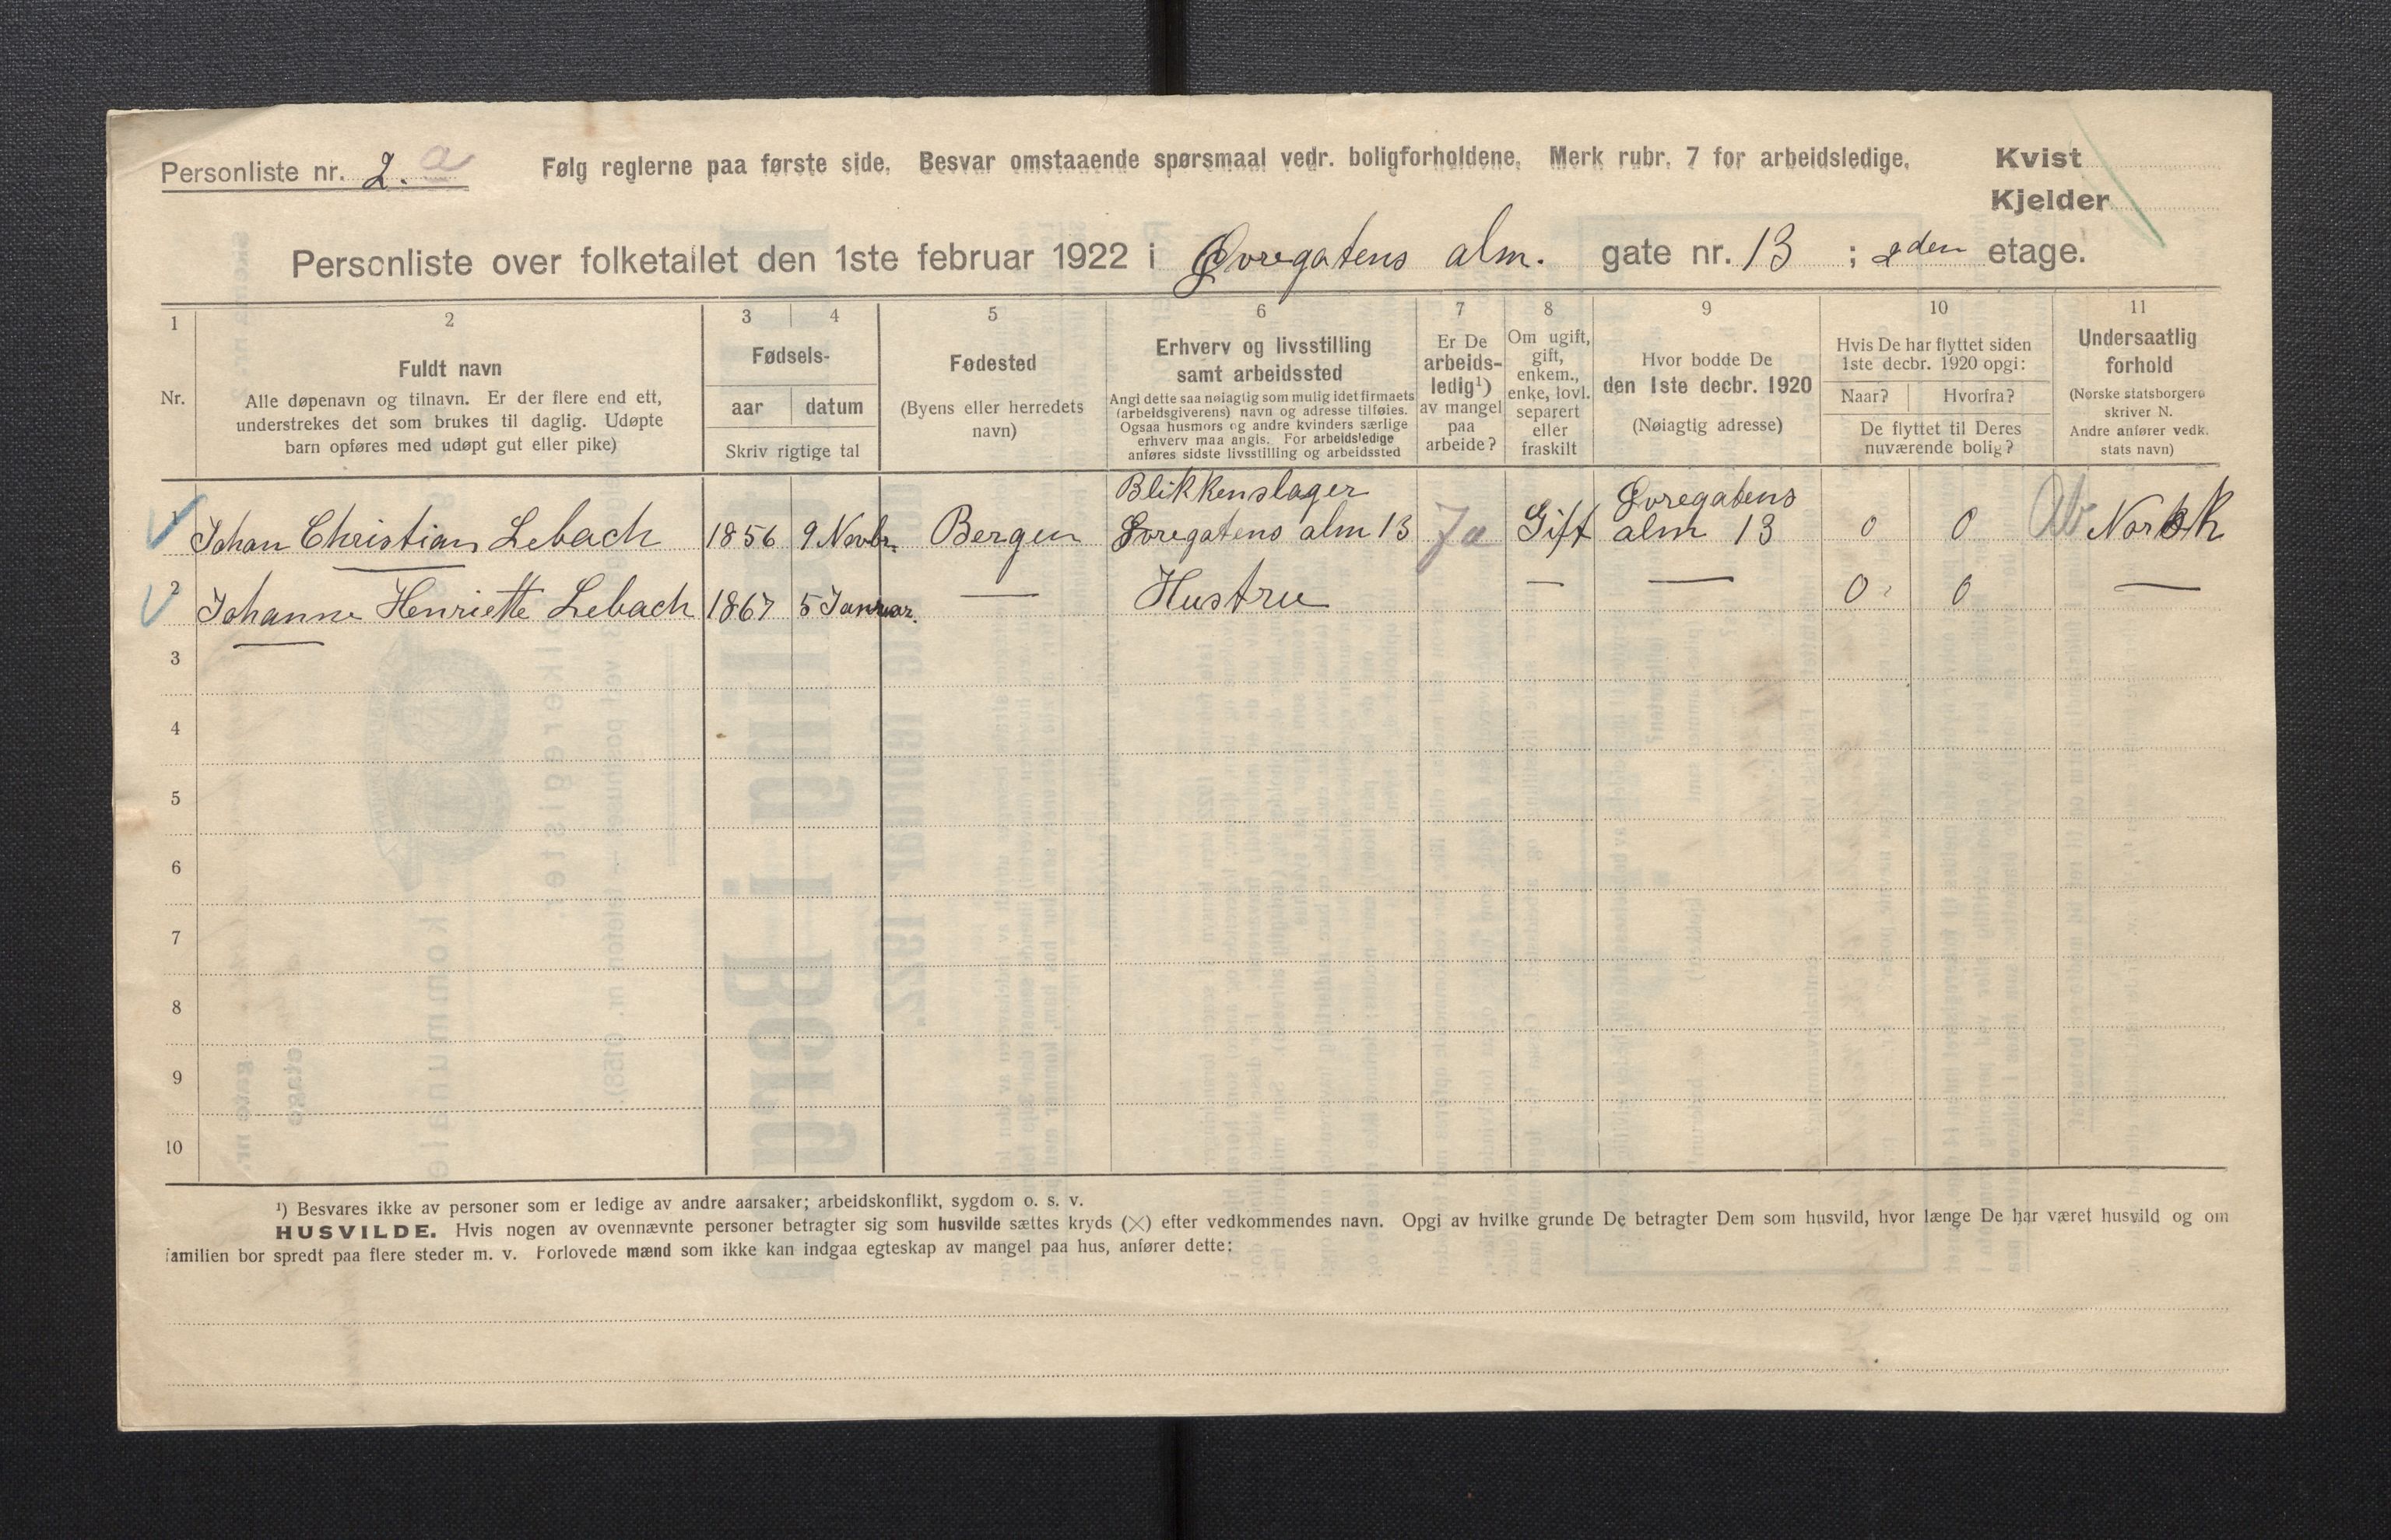 Personliste nr. 2. a
Følg reglerne paa første side. Besvar omstaaende spørsmaal vedr. boligforholdene. Merk rubr. 7 for arbeidsledige.
Kvist
Kjelder
Personliste over folketallet den 1ste februar 1922 i Øvregatens alm. gate nr. 13 ; 2den etage.
1 2 3 4 5 6 7 8 9 10 11
Nr.
Fuldt navn
Alle døpenavn og tilnavn. Er der flere end ett,
understrekes det som brukes til daglig. Udøpte
barn opføres med udøpt gut eller pike)
Fødsels-
aar datum
Skriv rigtige tal
Fødested
(Byens eller herredets
navn)
Erhverv og livsstilling
samt arbeidssted
Angi dette saa nøiaglig som mulig idet firmaets
(arbeidsgiverens) navn og adresse tilføies.
Ogsaa husmors og andre kvinders særlige
erhverv maa angis. For arbeidsledige
anføres sidste livsstilling og arbeidssted
Er De
arbeids-
ledig¹)
av mangel
paa
arbeide?
Om ugift,
gift,
enkem.,
enke, lovl.
separert
eller
fraskilt
Hvor bodde De
den 1ste decbr. 1920
(Nøiagtig adresse)
Hvis De har flyttet siden
1ste decbr. 1920 opgi:
Naar? Hvorfra?
De flyttet til Deres
nuværende bolig?
Undersaatlig
forhold
(Norske statsborgere
skriver N.
Andre anfører vedk.
stats navn)
1 Johan Christian Lebach 1856 9 Novbr. Bergen Blikkenslager
Øvregatens alm 13 Ja Gift Øvregatens
alm 13 0 0 Norsk
2 Johanne Henriette Lebach 1867 5 Januar. — Hustru — — 0 0 —
3
4
5
6
7
8
9
10
¹) Besvares ikke av personer som er ledige av andre aarsaker; arbeidskonflikt, sygdom o. s. v.
HUSVILDE. Hvis nogen av ovennævnte personer betragter sig som husvilde sættes kryds (×) efter vedkommendes navn. Opgi av hvilke grunde De betragter Dem som husvild, hvor længe De har været husvild og om
familien bor spredt paa flere steder m. v. Forlovede mænd som ikke kan indgaa egteskap av mangel paa hus, anfører dette: